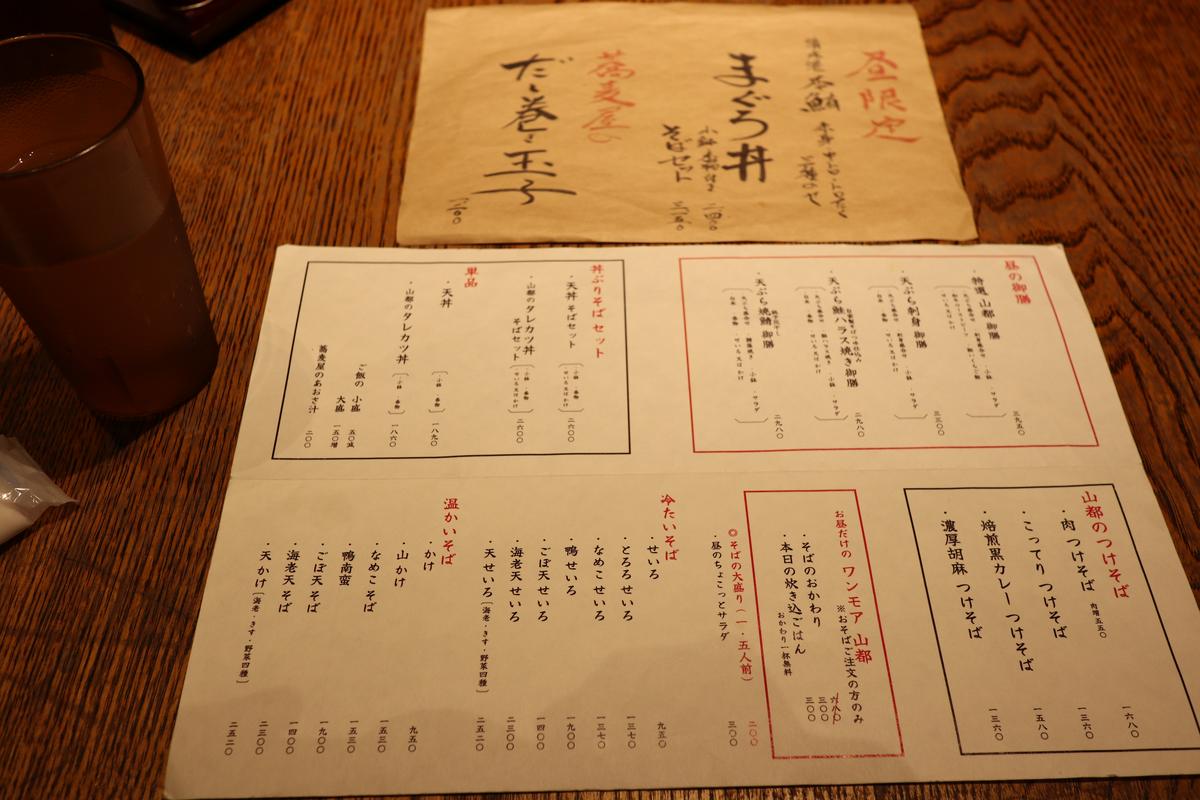 昼限定
本鮪 赤身
まぐろ丼
小鉢 お新香付き 二四〇〇
そばセット 三一五〇
蕎麦屋の
だし巻き玉子
一二〇〇
昼の御膳
・特選 山都 御膳 三九五〇
・天ぷら刺身 御膳 三三〇〇
・天ぷら鮭ハラス焼き 御膳 二九八〇
・天ぷら焼鯖 御膳 二九八〇
丼ぶりそば セット
・天丼 そばセット 二六〇〇
・山都のタレカツ丼 そばセット 二六〇〇
単品
・天丼 一八九〇
・山都のタレカツ丼 一八六〇
ご飯の 小盛 五〇減
大盛 一五〇増
蕎麦屋のあおさ汁 二〇〇
山都のつけそば
・肉 つけそば 肉増五五〇 一六八〇
・こってり つけそば 一三六〇
・焙煎黒カレー つけそば 一五八〇
・濃厚胡麻 つけそば 一三六〇
お昼だけの ワンモア 山都
※おそばご注文の方のみ
・そばのおかわり 三〇〇
・本日の炊き込ごはん 三〇〇
おかわり一杯無料
◎そばの大盛り(一・五人前) 二〇〇
・昼のちょこっとサラダ 三〇〇
冷たいそば
・せいろ 九五〇
・とろろ せいろ 一三七〇
・なめこ せいろ 一三七〇
・鴨 せいろ 一九〇〇
・ごぼ天 せいろ 一四〇〇
・海老天 せいろ 二三〇〇
・天 せいろ[海老・きす・野菜四種] 二五二〇
温かいそば
・かけ 九五〇
・山かけ 一五三〇
・なめこ そば 一五三〇
・鴨南蛮 一九〇〇
・ごぼ天 そば 一四〇〇
・海老天 そば 二三〇〇
・天かけ[海老・きす・野菜四種] 二五二〇